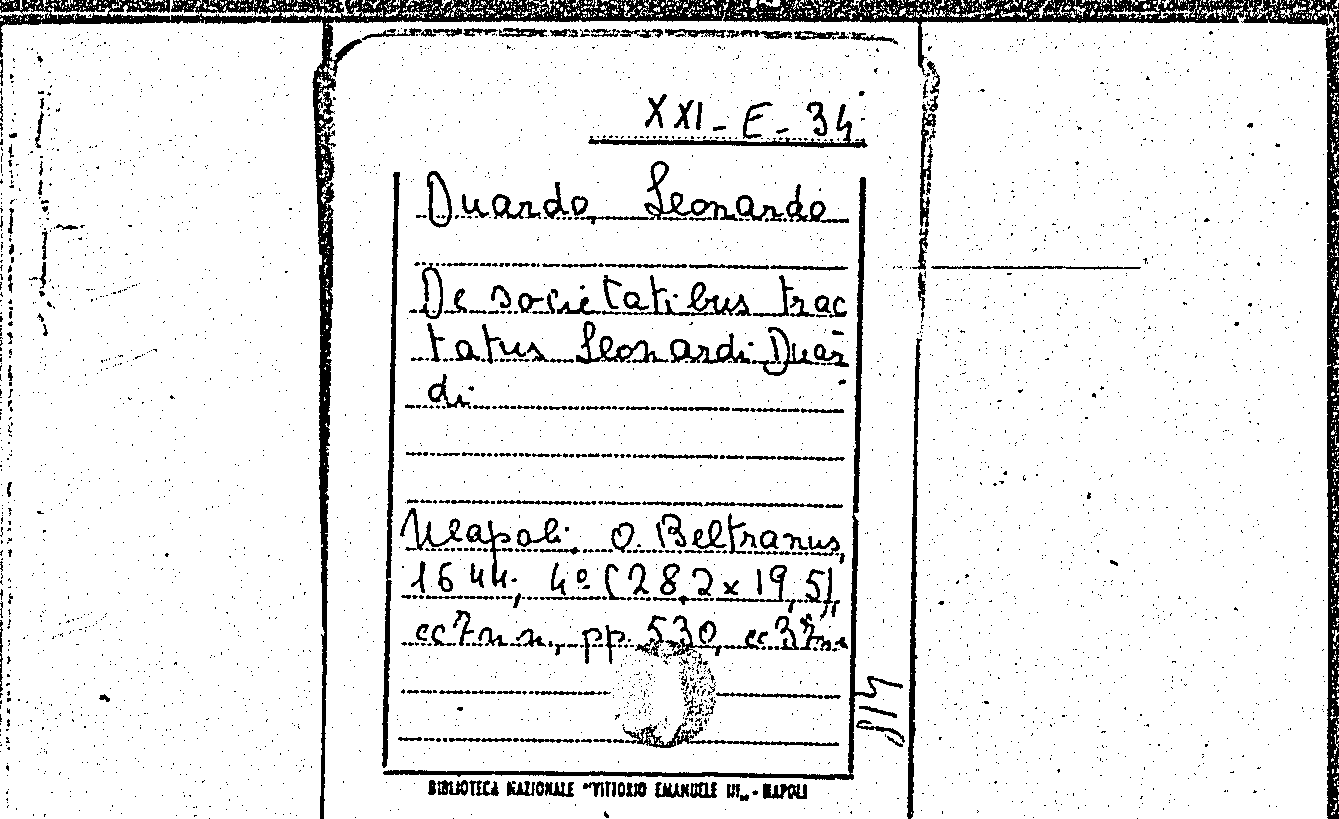 XXI-E-34
Duardo, Leonardo
De societatibus trac
tatus Leonardi Duar
di
Neapoli. O. Beltranus,
1644; 4º (28,2 x 19,5),
cc 7 n n., pp. 530, cc 37
BIBLIOTECA NAZIONALE "VITTORIO EMANUELE III„ - NAPOLI